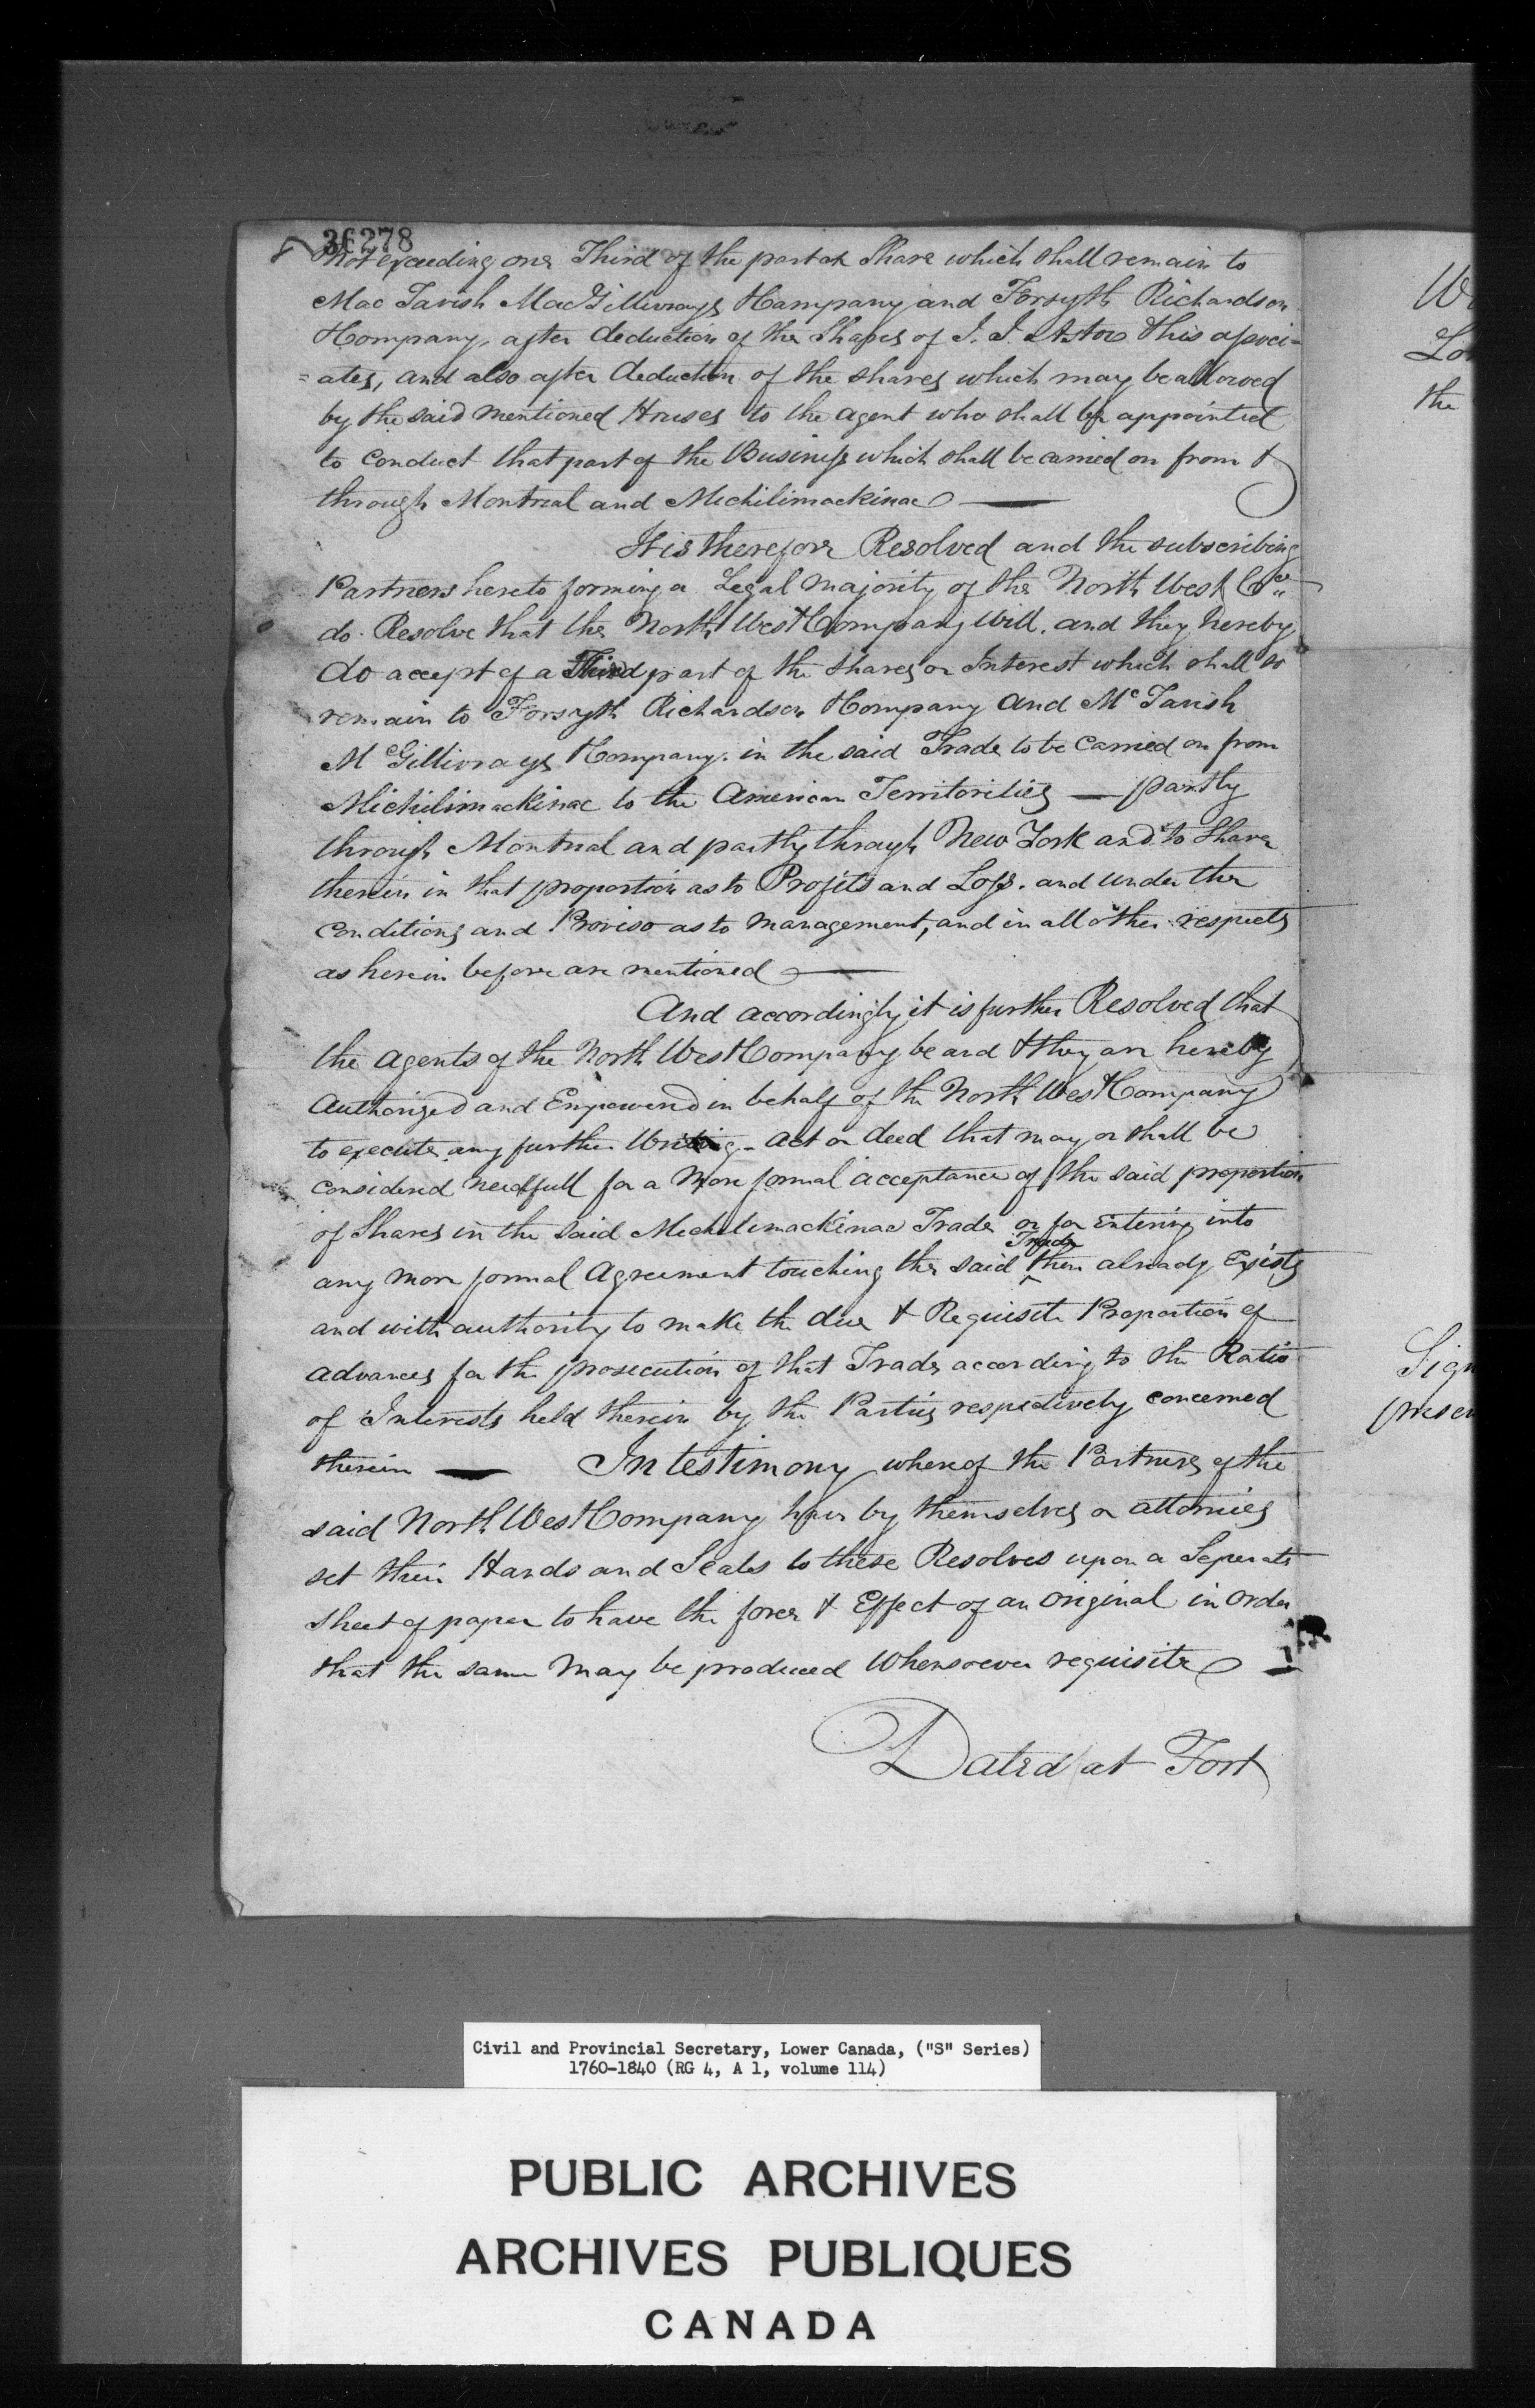 36278
not exceeding one Third of the part or Share which shall remain to
Mac Tavish MacGillivrays & Company and Forsyth Richardson
& Company, after deduction of the Shares of J. J. Astor & his associ-
= ates, and also after deduction of the shares which may be allowed
by the said mentioned Houses to the agent who shall be appointed
to conduct that part of the Business which shall be carried on from &
through Montreal and Michilimackinac —
It is therefore Resolved and the subscribing
Partners hereto forming a Legal majority of the North West Co
do Resolve that the North West Company Will, and they hereby
do accept of a Third part of the shares or Interest which shall so
remain to Forsyth Richardson & Company and Mc Tavish
McGillivrays & Company. in the said Trade to be Carried on from
Michilimackinac to the American Territorities — partly
through Montreal and partly through New York and to Share
therein in that proportion as to Profits and Loss. and under the
conditions and Proviso as to management, and in all other respects
as herein before are mentioned —
And accordingly it is further Resolved that
the agents of the North West Company be and & they are hereby
Authorized and Empowered in behalf of the North West Company
to execute any further Writing - Act or deed that may or shall be
considered needfull for a More formal acceptance of the said proportion
of Shares in the said Michilimackinac Trade or for Entering into
any more formal Agreement touching the said Trade then already Exists
and with authority to make the due & Requisite Proportion of
advances for the prosecution of that Trade according to the Ratio
of Interests held therein by the Parties respectively concerned
therein — In testimony whereof the Partners of the
said North West Company have by themselves or attornies
set their Hands and Seals to these Resolves upon a Seperate
sheet of paper to have the force & Effect of an original in order
that the same may be produced Whensoever requisite —
Dated at Fort
the
Civil and Provincial Secretary, Lower Canada, ("S" Series)
1760-1840 (RG 4, A 1, volume 114)
PUBLIC ARCHIVES
ARCHIVES PUBLIQUES
CANADA